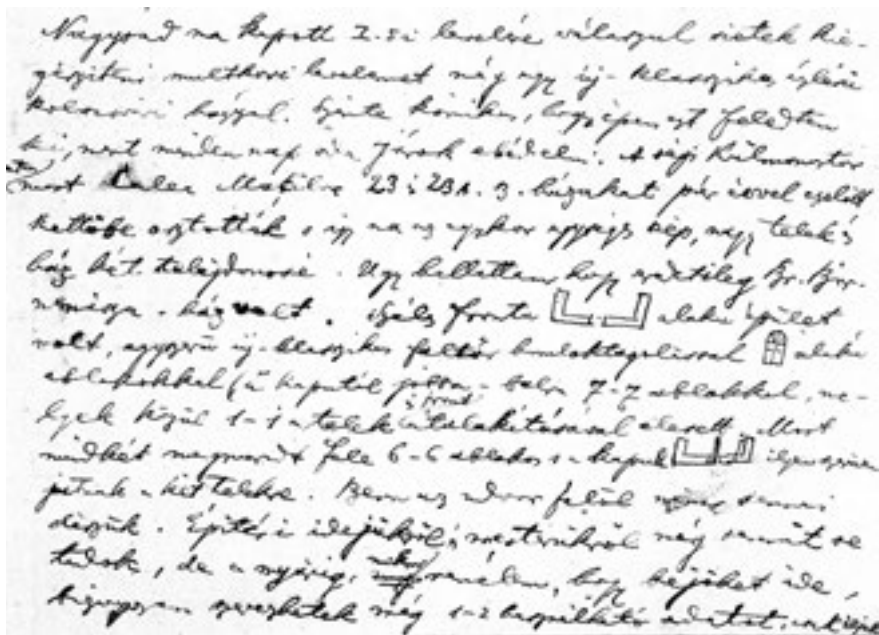 Nagyvad ma kapott 2.-i levelére válaszul sietek kie-
gészíteni multkori levelemet még egy új-klasszikus ízlésű
kolozsvári házzal. Szinte komikus, hogy épen ezt feledtem
ki, mert minden nap oda járok ebédelni. A régi Külmonostor
most Calea Moţilor 23 i 23A. 3. házakat pár évvel ezelőtt
kettőbe osztották s így ma az egykor egységes kép, nagy telek s
ház két tulajdonosé. Úgy hallottam hogy eredetileg Br.
ház volt. Széles fronta alakú épület
volt, egyszerű új-klasszikus homloktagolással alakú
ablakokkal (a kaputól jobbra-balra 7-7 ablakkal, me-
lyek közül 1-1 a telek átalakításával elesett. Most
mindkét megmaradt fele 6-6 ablakos s a kapuk
jutnak a két telekre. Benn az udvar felől nincs semmi
díszük. Építési idejükről s mesterükről még semmit se
tudok, de a nyárig, remélem, hogy bejöhet ide,
szerezhetek még 1-2 adatot.